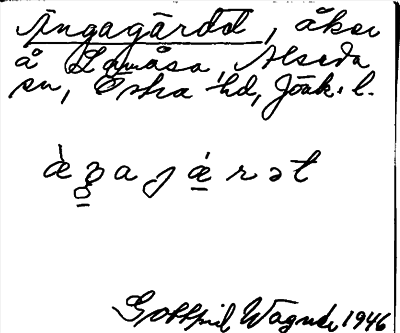 Ängagärdet, åker
å Lamåsa, Alseda
sn, Östra hd, Jönk. l.
æ̀ŋ̱aȷǽ̱rət
Gottfrid Wågnér 1946